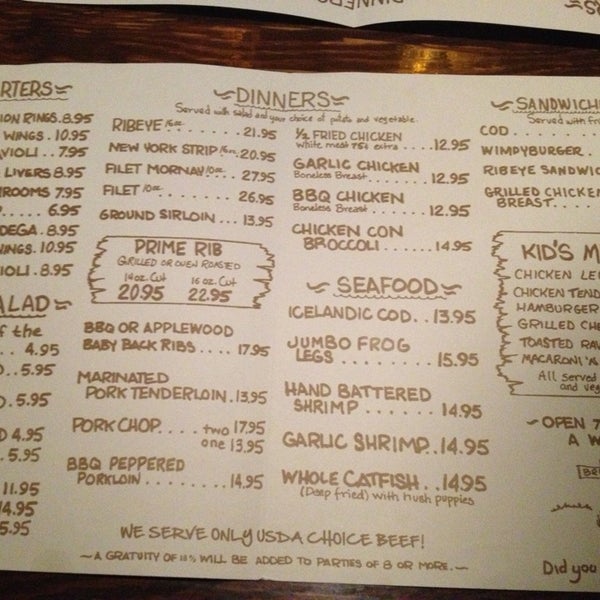 DINNERS
RTERS
ION RINGS. 8.95
WINGS. 10.95
AVIOLI.. 7.95
LIVERS 8.95
HROOMS 7.95
6.95
DEGA. 8.95
WINGS. 10.95
VIOLI. 8.95
ALAD
f the
4.95
5.95
5.95
4.95
5.95
11.95
14.95
5.95
DINNERS
Served with salad and your choice of potato and vegetable.
RIBEYE 16 oz. . . . . . . 21.95
NEW YORK STRIP 16 oz. 20.95
FILET MORNAY 10 oz. . . . 27.95
FILET 10 oz. . . . . . . 26.95
GROUND SIRLOIN . . . 13.95
PRIME RIB
GRILLED OR OVEN ROASTED
14 oz. Cut 16 oz. Cut
20.95 22.95
BBQ OR APPLEWOOD
BABY BACK RIBS . . . . 17.95
MARINATED
PORK TENDERLOIN . 13.95
PORK CHOP. . . . . two 17.95
one 13.95
BBQ PEPPERED
PORKLOIN . . . . . . . . 14.95
½ FRIED CHICKEN
White meat 75¢ extra . . . . 12.95
GARLIC CHICKEN
Boneless Breast . . . . . 12.95
BBQ CHICKEN
Boneless Breast . . . . . 12.95
CHICKEN CON
BROCCOLI . . . . . . 14.95
SEAFOOD
ICELANDIC COD. . 13.95
JUMBO FROG
LEGS . . . . . . . . . 15.95
HAND BATTERED
SHRIMP . . . . . . . 14.95
GARLIC SHRIMP. . 14.95
WHOLE CATFISH . . 14.95
(Deep fried) with hush puppies
SANDWICHE
Served with fri
COD . . . . . .
WIMPYBURGER . .
RIBEYE SANDWIC
GRILLED CHICKEN
BREAST. . . .
KID'S M
CHICKEN LE
CHICKEN TEND
HAMBURGER
GRILLED CHE
TOASTED RAV
MACARONI 'N
All served
and veg
OPEN 7
A W
Did you
WE SERVE ONLY USDA CHOICE BEEF!
~A GRATUITY OF 18% WILL BE ADDED TO PARTIES OF 8 OR MORE.~